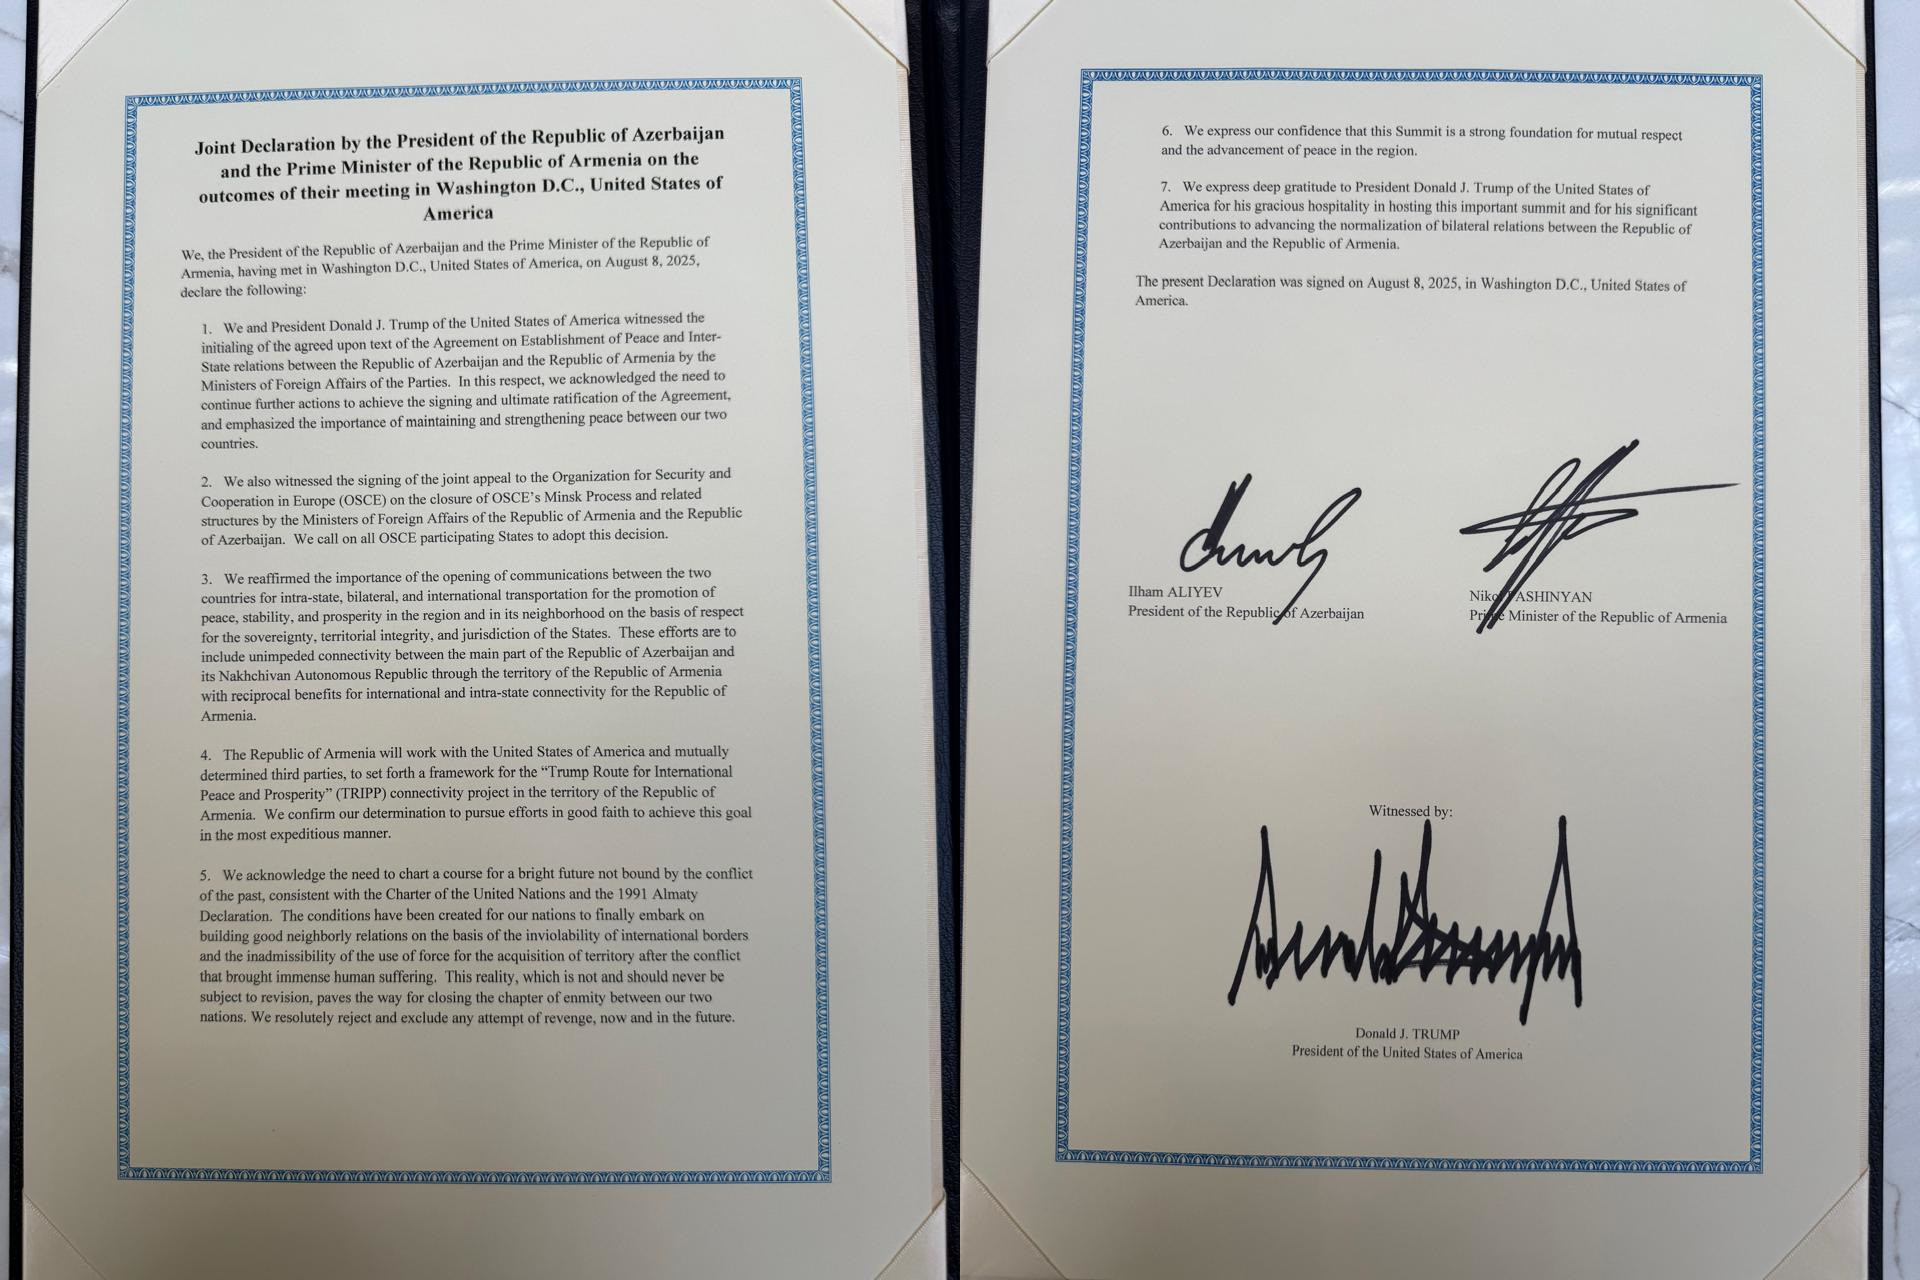 Joint Declaration by the President of the Republic of Azerbaijan
and the Prime Minister of the Republic of Armenia on the
outcomes of their meeting in Washington D.C., United States of
America
We, the President of the Republic of Azerbaijan and the Prime Minister of the Republic of
Armenia, having met in Washington D.C., United States of America, on August 8, 2025,
declare the following:
1. We and President Donald J. Trump of the United States of America witnessed the
initialing of the agreed upon text of the Agreement on Establishment of Peace and Inter-
State relations between the Republic of Azerbaijan and the Republic of Armenia by the
Ministers of Foreign Affairs of the Parties. In this respect, we acknowledged the need to
continue further actions to achieve the signing and ultimate ratification of the Agreement,
and emphasized the importance of maintaining and strengthening peace between our two
countries.
2. We also witnessed the signing of the joint appeal to the Organization for Security and
Cooperation in Europe (OSCE) on the closure of OSCE's Minsk Process and related
structures by the Ministers of Foreign Affairs of the Republic of Armenia and the Republic
of Azerbaijan. We call on all OSCE participating States to adopt this decision.
3. We reaffirmed the importance of the opening of communications between the two
countries for intra-state, bilateral, and international transportation for the promotion of
peace, stability, and prosperity in the region and in its neighborhood on the basis of respect
for the sovereignty, territorial integrity, and jurisdiction of the States. These efforts are to
include unimpeded connectivity between the main part of the Republic of Azerbaijan and
its Nakhchivan Autonomous Republic through the territory of the Republic of Armenia
with reciprocal benefits for international and intra-state connectivity for the Republic of
Armenia.
4. The Republic of Armenia will work with the United States of America and mutually
determined third parties, to set forth a framework for the “Trump Route for International
Peace and Prosperity” (TRIPP) connectivity project in the territory of the Republic of
Armenia. We confirm our determination to pursue efforts in good faith to achieve this goal
in the most expeditious manner.
5. We acknowledge the need to chart a course for a bright future not bound by the conflict
of the past, consistent with the Charter of the United Nations and the 1991 Almaty
Declaration. The conditions have been created for our nations to finally embark on
building good neighborly relations on the basis of the inviolability of international borders
and the inadmissibility of the use of force for the acquisition of territory after the conflict
that brought immense human suffering. This reality, which is not and should never be
subject to revision, paves the way for closing the chapter of enmity between our two
nations. We resolutely reject and exclude any attempt of revenge, now and in the future.
6. We express our confidence that this Summit is a strong foundation for mutual respect
and the advancement of peace in the region.
7. We express deep gratitude to President Donald J. Trump of the United States of
America for his gracious hospitality in hosting this important summit and for his significant
contributions to advancing the normalization of bilateral relations between the Republic of
Azerbaijan and the Republic of Armenia.
The present Declaration was signed on August 8, 2025, in Washington D.C., United States of
America.
Ilham ALIYEV
President of the Republic of Azerbaijan
Nikol PASHINYAN
Prime Minister of the Republic of Armenia
Witnessed by:
Donald J. TRUMP
President of the United States of America